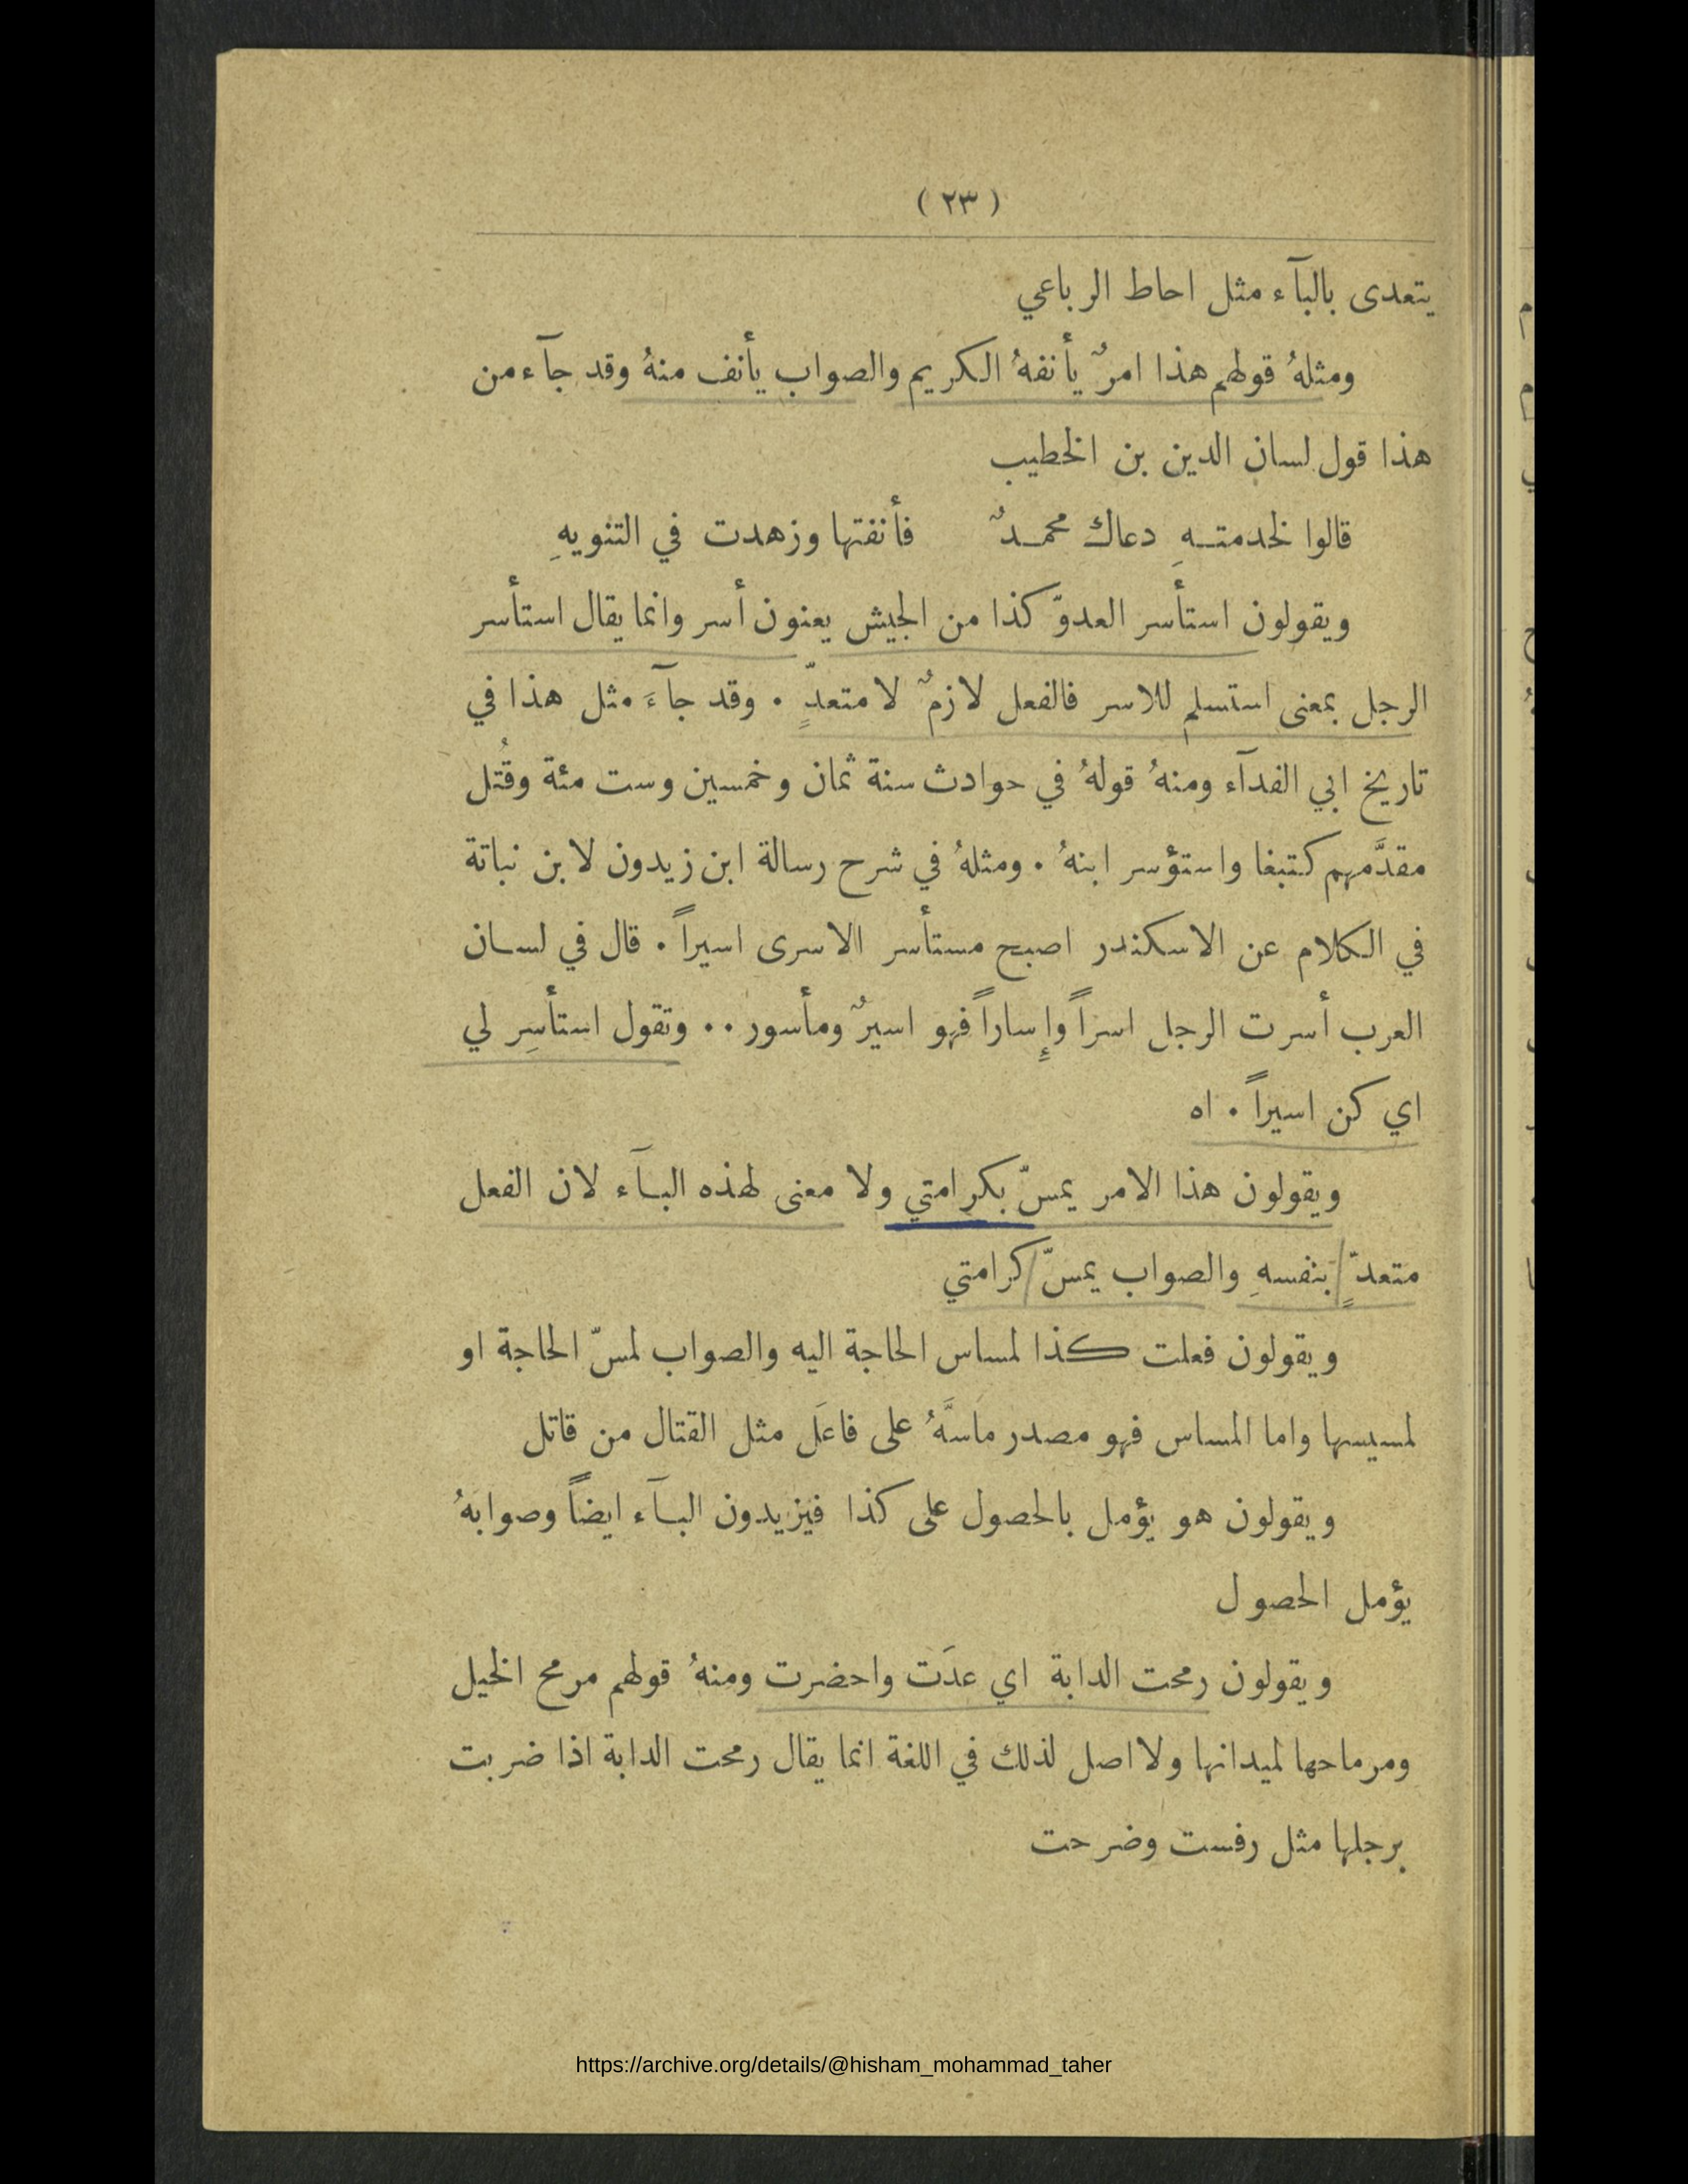 ( ٢٣ )
يتعدى بالبآء مثل احاط الرباعي
ومثلهُ قولهم هذا امرٌ يأنفهُ الكريم والصواب يأنف منهُ وقد جآء من
هذا قول لسان الدين بن الخطيب
قالوا لخدمتـهِ دعاك محمـدٌ فأنفتها وزهدت في التنويهِ
ويقولون استأسر العدوّ كذا من الجيش يعنون أسر وانما يقال استأسر
الرجل بمعنى استسلم للاسر فالفعل لازمٌ لا متعدٍّ . وقد جآءَ مثل هذا في
تاريخ ابي الفدآء ومنهُ قولهُ في حوادث سنة ثمان وخمسين وست مئة وقُتل
مقدَّمهم كتبغا واستؤسر ابنهُ . ومثلهُ في شرح رسالة ابن زيدون لابن نباتة
في الكلام عن الاسكندر اصبح مستأسر الاسرى اسيراً . قال في لسـان
العرب أسرت الرجل اسراً وإِساراً فهو اسيرٌ ومأسور .. وتقول استأسِر لي
اي كن اسيراً . اه
ويقولون هذا الامر يمسّ بكرامتي ولا معنى لهذه البـآء لان الفعل
متعدٍّ بنفسهِ والصواب يمسّ كرامتي
ويقولون فعلت كذا لمساس الحاجة اليه والصواب لمسّ الحاجة او
لمسيسها واما المساس فهو مصدر ماسَّهُ على فاعَل مثل القتال من قاتل
ويقولون هو يؤمل بالحصول على كذا فيزيدون البـآء ايضاً وصوابهُ
يؤمل الحصول
ويقولون رمحت الدابة اي عدَت واحضرت ومنهُ قولهم مرمح الخيل
ومرماحها لميدانها ولا اصل لذلك في اللغة انما يقال رمحت الدابة اذا ضربت
برجلها مثل رفست وضرحت
https://archive.org/details/@hisham_mohammad_taher